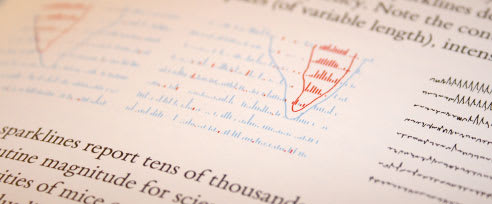 cy. Note the con
(of variable length), intens
sparklines report tens of thousands
utine magnitude for scien
ities of mice